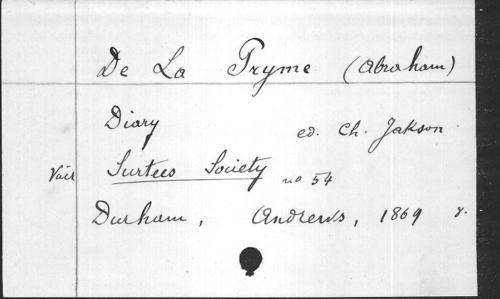 De La Pryme (Abraham)
Diary ed. Ch. Jakson
Voir Surtees Society no 54
Durham, Andrews, 1869 8.